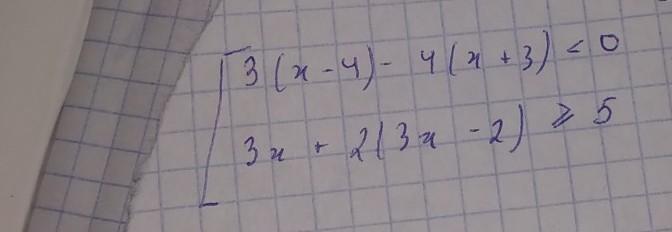 3(x-4)- 4(x+3)<0
3x + 2(3x -2) ⩾ 5